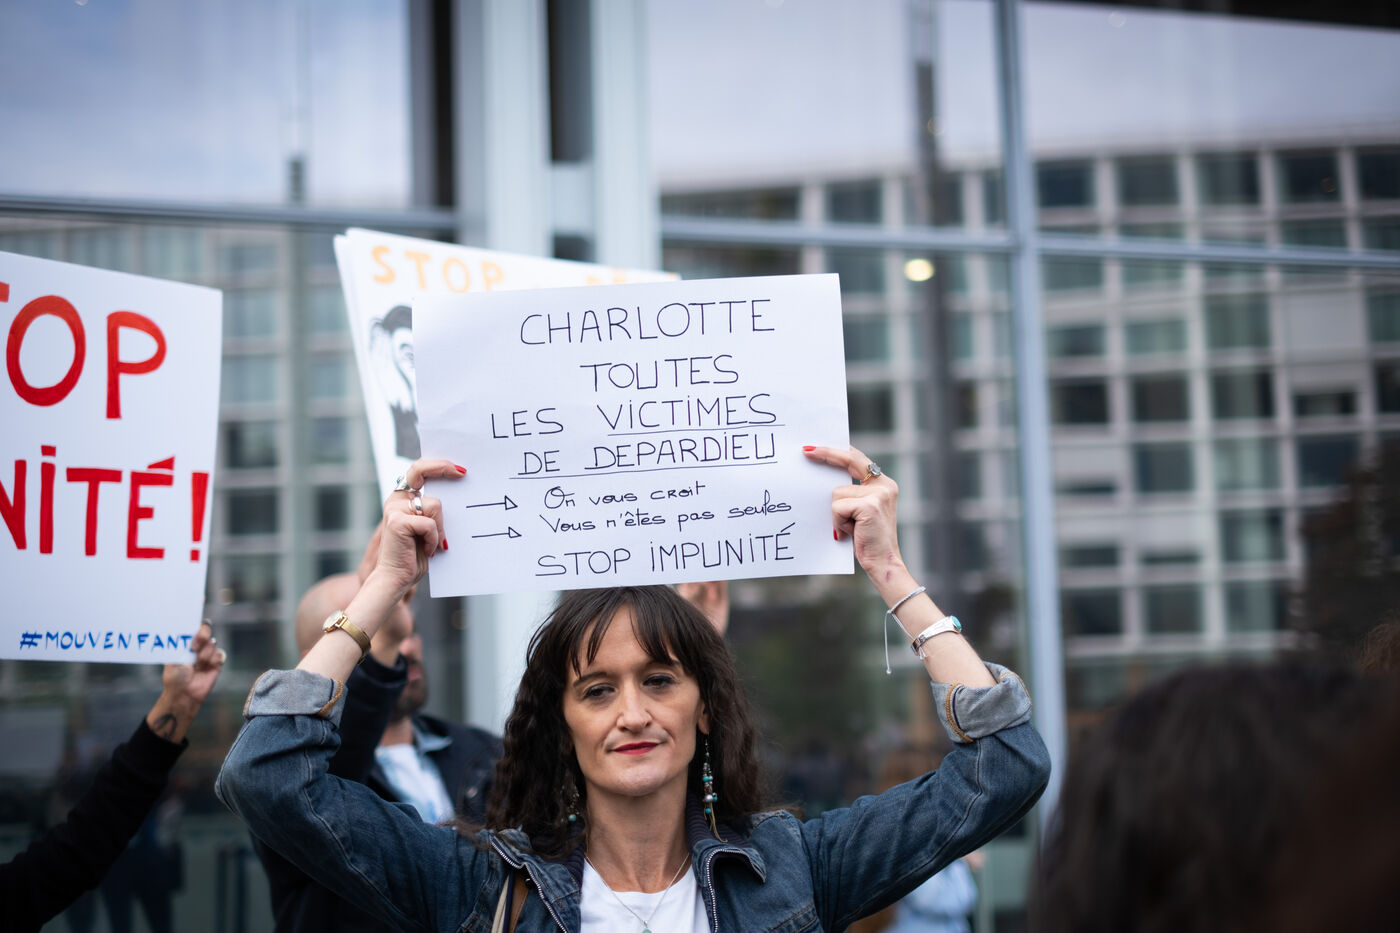 TOP
NITÉ!
#MOUVENFANT
STOP
CHARLOTTE
TOUTES
LES VICTIMES
DE DEPARDIEU
→ On vous croit
→ Vous n'êtes pas seules
STOP IMPUNITÉ